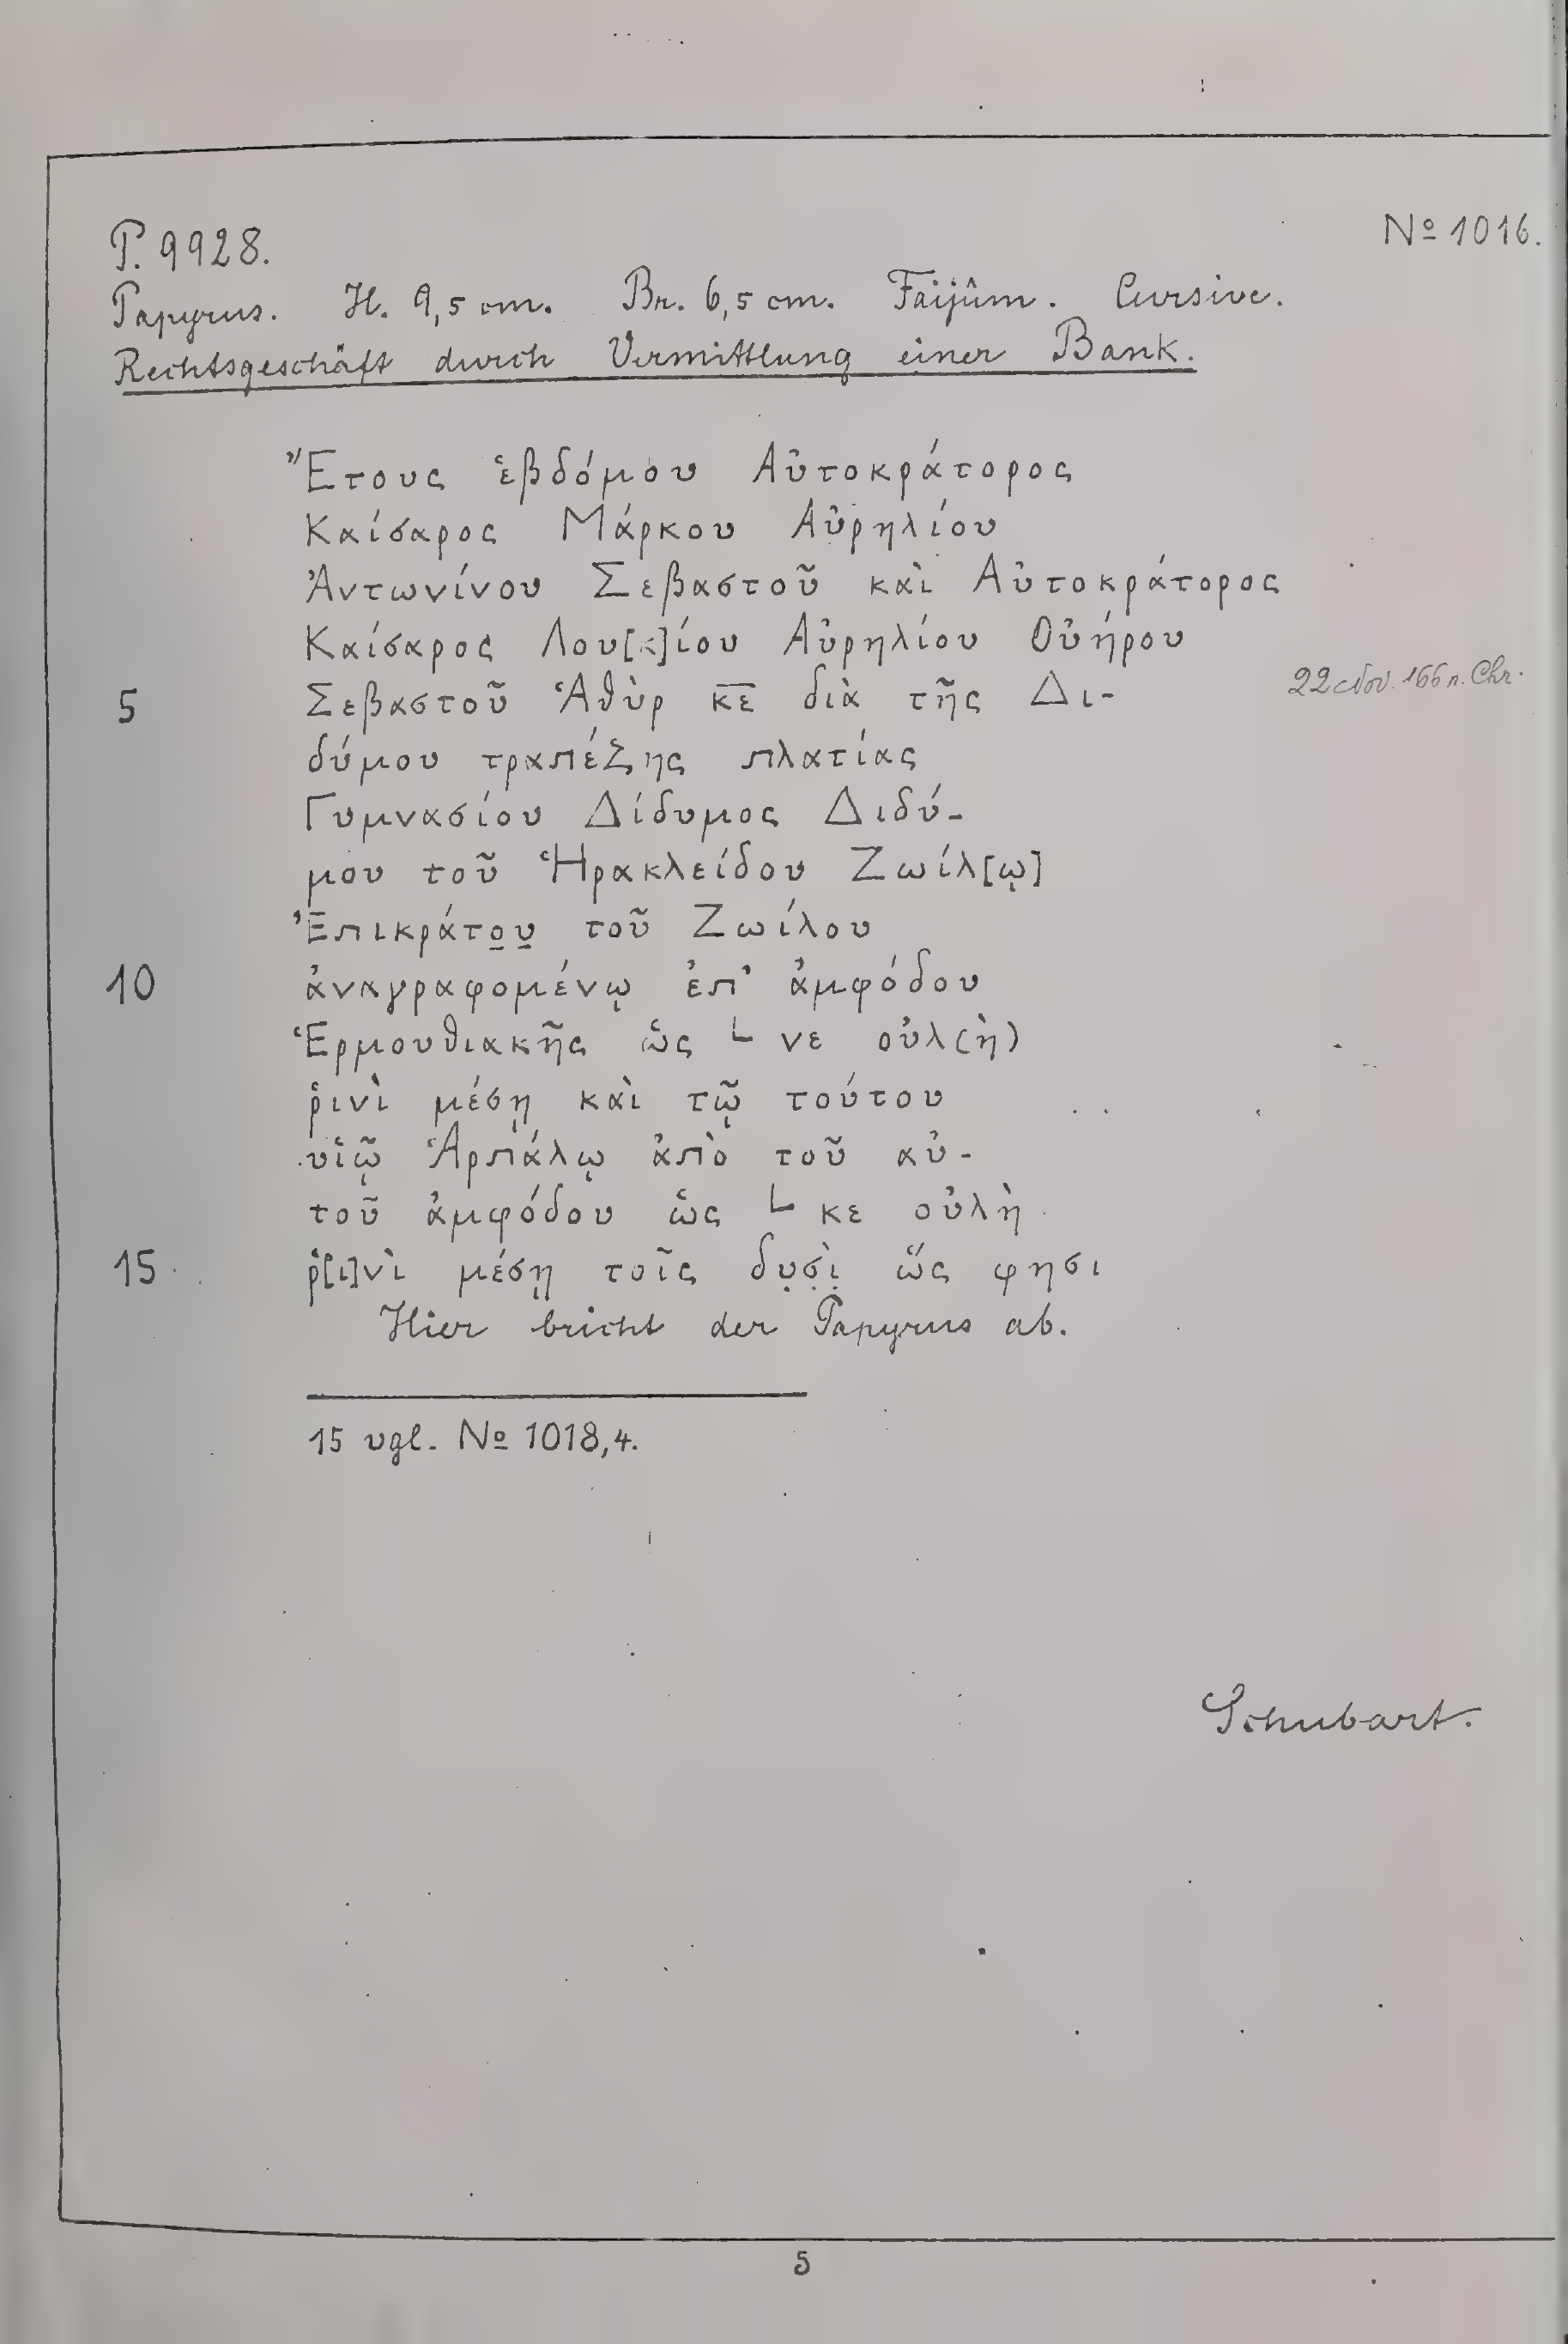 P. 9928. № 1016.
Papyrus. H. 9,5 cm. Br. 6,5 cm. Faijûm. Cursive.
Rechtsgeschäft durch Vermittlung einer Bank.
Ἔτους ἑβδόμου Αὐτοκράτορος
Καίσαρος Μάρκου Αὐρηλίου
Ἀντωνίνου Σεβαστοῦ καὶ Αὐτοκράτορος
Καίσαρος Λου[κ]ίου Αὐρηλίου Οὐήρου
5 Σεβαστοῦ Ἁθὺρ κ̅ε̅ διὰ τῆς Δι- 22 Nov. 166 n. Chr.
δύμου τραπέζης πλατίας
Γυμνασίου Δίδυμος Διδύ-
μου τοῦ Ἡρακλείδου Ζωίλ[ῳ]
Ἐπικράτο̲υ̲ τοῦ Ζωίλου
10 ἀναγραφομένῳ ἐπ' ἀμφόδου
Ἑρμουθιακῆς ὡς └ νε οὐλ(ὴ)
ῥινὶ μέσῃ καὶ τῷ τούτου
υἱῷ Ἁρπάλῳ ἀπὸ τοῦ αὐ-
τοῦ ἀμφόδου ὡς └ κε οὐλὴ
15 ῥ[ι]νὶ μέσῃ τοῖς δυ̣σ̣ὶ̣ ὥς φησι
Hier bricht der Papyrus ab.
15 vgl. № 1018,4.
Schubart.
5